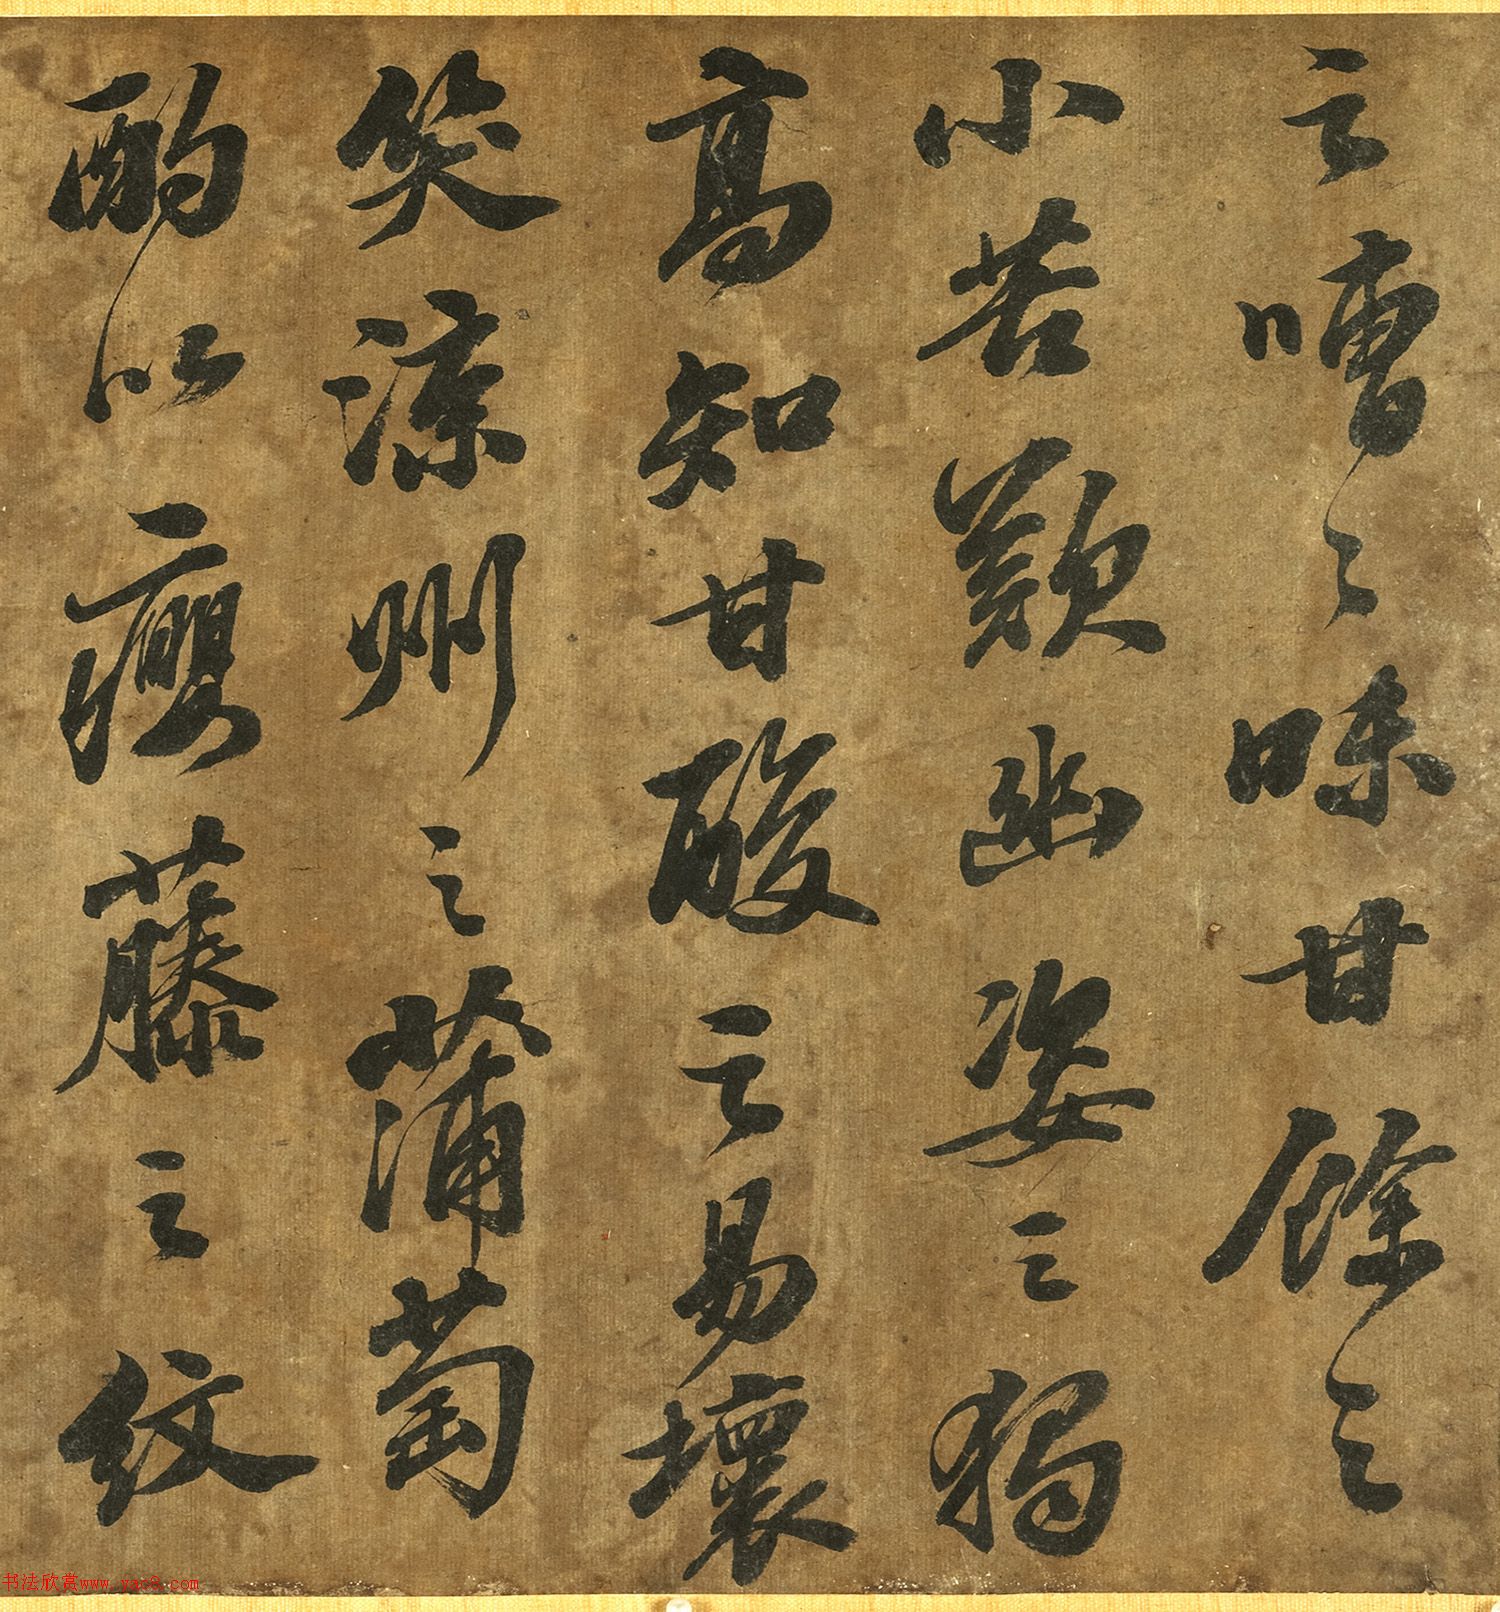 之嘈嘈味甘餘之
小苦歎幽姿之獨
高知甘酸之易壞
笑涼州之蒲萄
酌以癭藤之紋
书法欣赏www.yac8.com